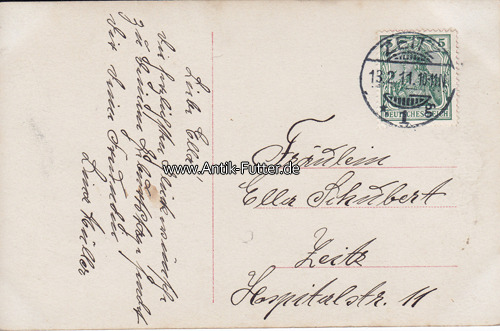 Liebe Ella!
Die herzlichsten Glückwünsche
zu Deinem Geburtstage sendet
Dir Deine Freundin
Lina Müller
ZEITZ
13.2.11.
1 g
5
DEUTSCHES REICH
www.Antik-Futter.de
Fräulein
Ella Schubert
Zeitz
Hospitalstr. 11